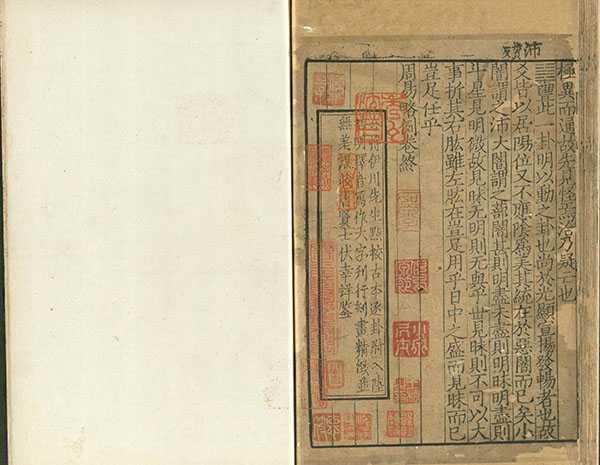 極異而通故先見怪焉洽乃疑亡也
豐此一卦明以動之卦也尚於光顯宣揚發暢者也故
爻皆以居陽位又不應陰爲美其統在於惡闇而已矣小
闇謂之沛大闇謂之蔀闇甚則明盡未盡則明昧明盡則
斗星見明微故見昧无明則无與乎世見昧則不可以大
事折其右肱雖左肱在豈足用乎日中之盛而見昧而已
豈足任乎
周易略例卷終
伊川先生點校古本逐卦附入陸
音寫作大字列行刻畫精緻並
無差誤收書賢士伏幸詳鑒